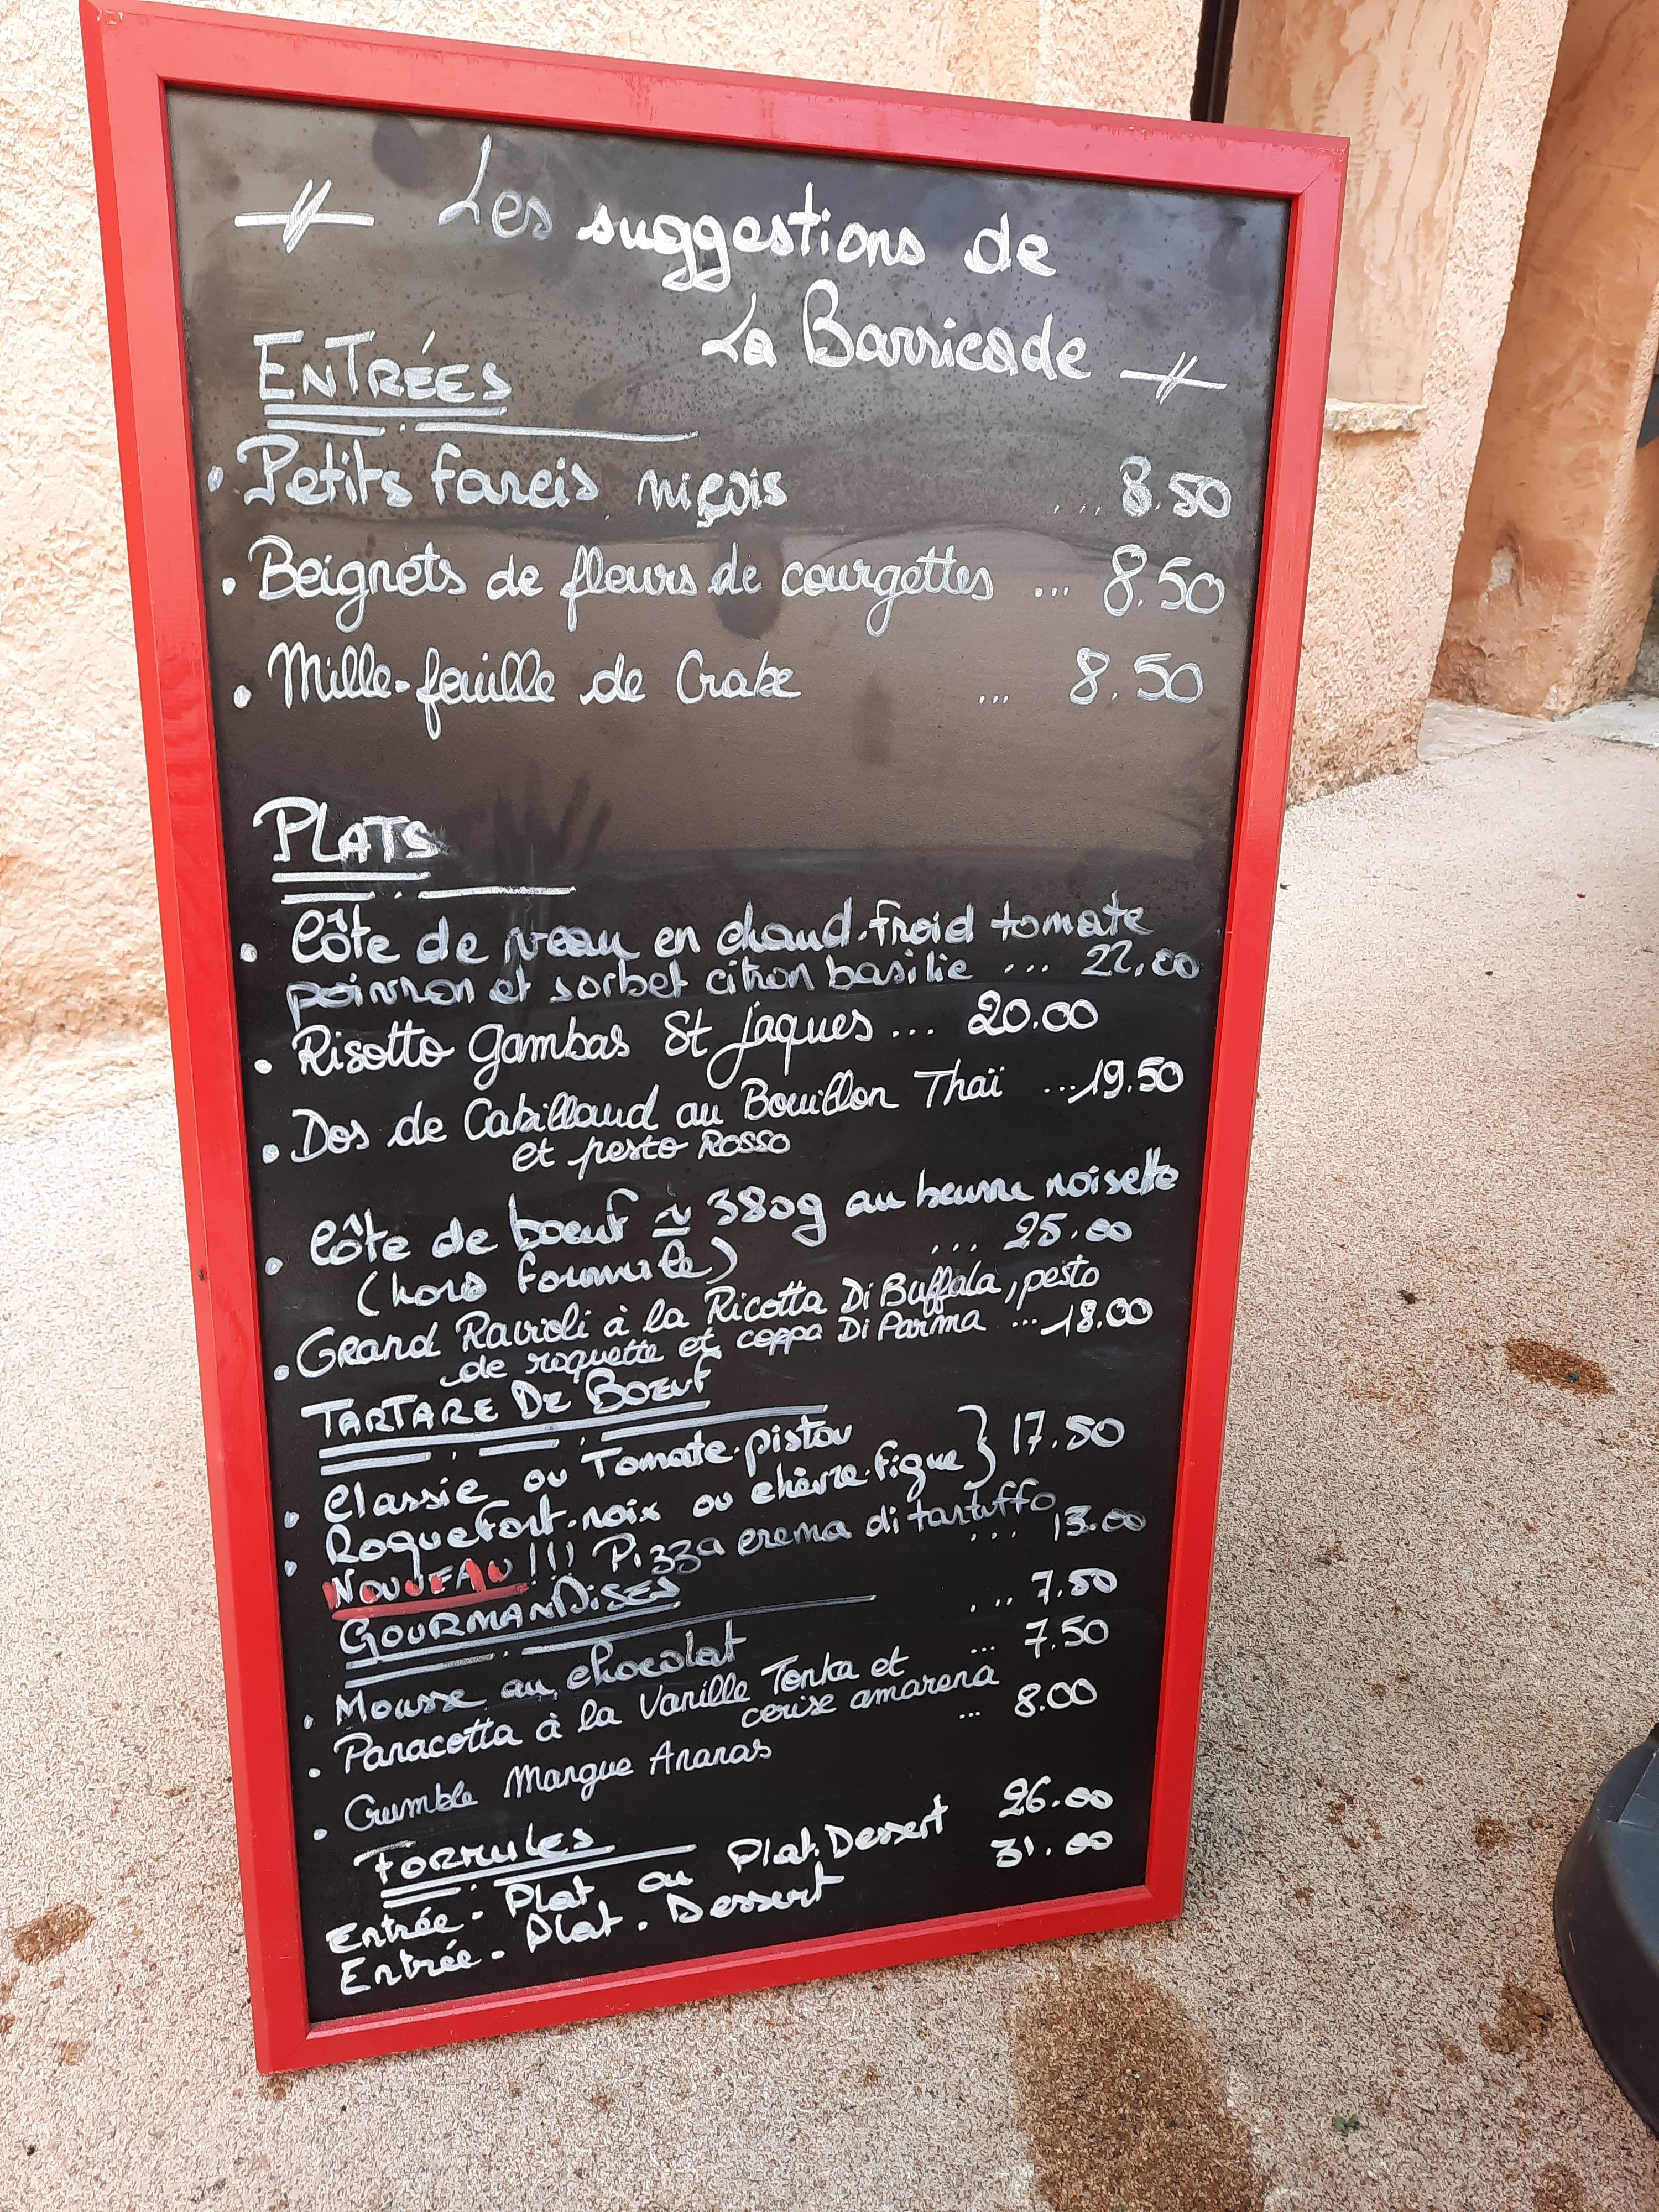 Les suggestions de
La Barricade
ENTRÉES
• Petits farcis niçois ... 8.50
• Beignets de fleurs de courgettes ... 8.50
• Mille-feuille de Crabe ... 8.50
PLATS
• Côte de veau en chaud-froid tomate
poivron et sorbet citron basilic ... 22,00
• Risotto gambas St jaques ... 20.00
• Dos de Cabillaud au Bouillon Thaï ... 19.50
et pesto Rosso
• Côte de boeuf ≃ 380g au beurre noisette
(hors formule) ... 25.00
• Grand Ravioli à la Ricotta Di Buffala, pesto
de roquette et coppa Di Parma ... 18.00
TARTARE DE BOEUF
• Classic ou Tomate-pistou
• Roquefort-noix ou chèvre-figue } 17.50
NOUVEAU !!! Pizza crema di tartuffo ... 13.00
GOURMANDISES
• Mousse au chocolat ... 7.50
• Panacotta à la Vanille Tonka et ... 7.50
cerise amarena
• Crumble Mangue Ananas ... 8.00
FORMULES
Entrée - Plat ou Plat-Dessert 26.00
Entrée - Plat - Dessert 31.00